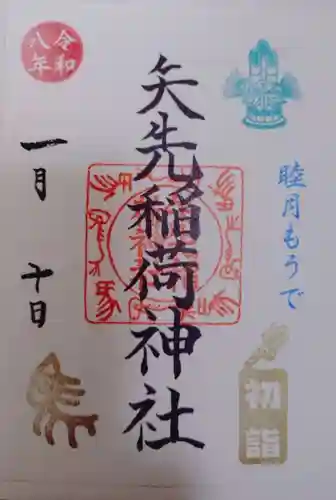 睦月もうで
初詣
矢先稲荷神社
令和
八年
一月 十日